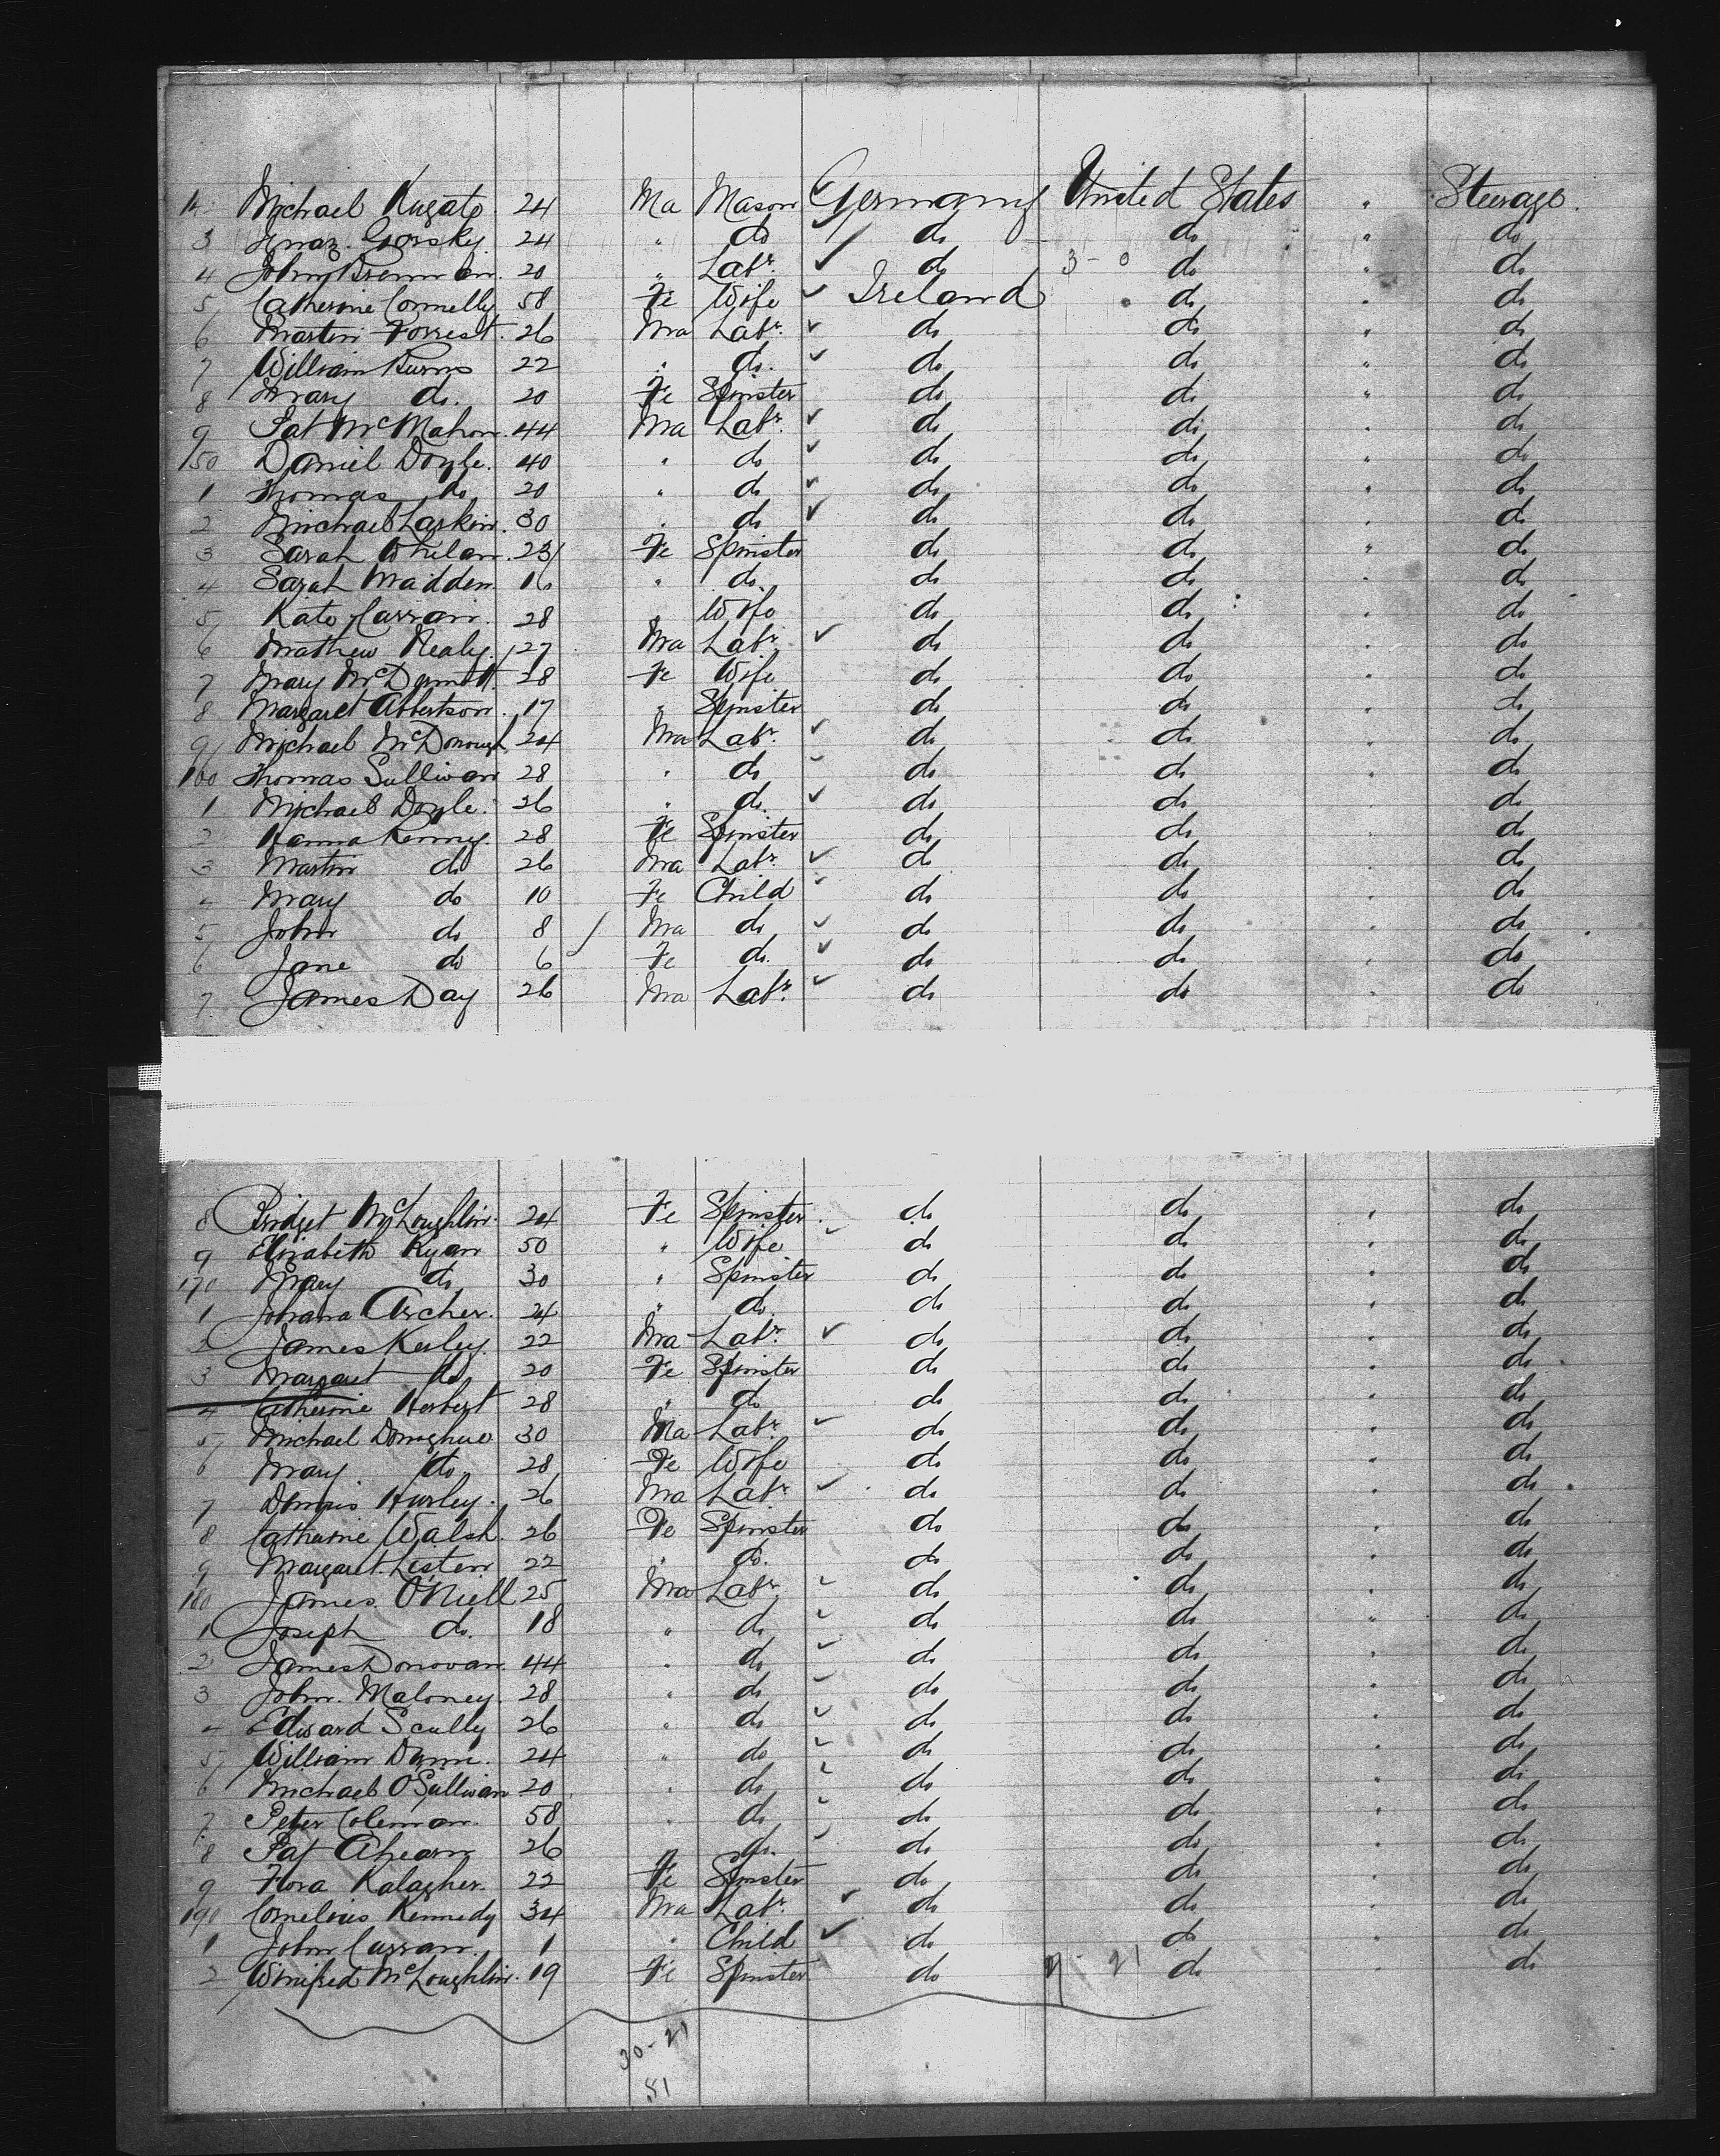 Michael Kugato. 24 Ma Mason Germany United States " Steerage.
3 Gorsky 24 " do do do " do
4 John 20 " Labr. do 3-0 do " do
5 Catherine Connelly 58 Fe Wife Ireland do " do
6 Martin Forrest. 26 Ma Labr. do do " do
7 William Burns 22 " do. do do " do
8 Mary do. 20 Fe Spinster do do " do
9 Pat McMahon. 44 Ma Labr. do do " do
150 Daniel Doyle. 40 " do do do " do
1 Thomas do 20 " do do do " do
2 Michael Larkin. 30 " do do do " do
3 Sarah Whelan. 23 Fe Spinster do do " do
4 Sarah Madden. 16 " do. do do " do
5 Kate Curran. 28 " Wife do do " do
6 Mathew Nealy. 27 Ma Labr. do do " do
7 Mary McDermott. 28 Fe Wife do do " do
8 Margaret Abbertson. 17 " Spinster do do " do
9 Michael McDonough 24 Ma Labr. do do " do
160 Thomas Sullivan 28 " do do do " do
1 Michael Doyle. 26 " do. do do " do
2 Hanna Kenny. 28 Fe Spinster do do " do
3 Martin do 26 Ma Labr. do do " do
4 Mary do 10 Fe Child do do " do
5 John do 8 Ma do do do " do
6 Jane do 6 Fe do. do do " do
7 James Day 26 Ma Labr. do do " do
8 Bridget McLoughlin. 24 Fe Spinster. do do " do
9 Elizabeth Ryan 50 " Wife do do " do
170 Mary do 30 " Spinster do do " do
1 Johana Archer. 24 " do. do do " do
2 James Kerley. 22 Ma Labr. do do " do
3 Margaret do 20 Fe Spinster do do " do
4 Catherine Herbert 28 " do do do " do
5 Michael Donoghue 30 Ma Labr. do do " do
6 Mary. do 28 Fe Wife do do " do
7 Dennis Hurley. 26 Ma Labr. do do " do
8 Catherine Walsh. 26 Fe Spinster do do " do
9 Margaret Listen 22 " do. do do " do
180 James. O'Niell 25 Ma Labr. do do " do
1 Joseph do. 18 " do do do " do
2 James Donovan. 44 " do do do " do
3 John. Maloney. 28 " do do do " do
4 Edward Scully 26 " do do do " do
5 William Dunn. 24 " do do do " do
6 Michael O'Sullivan 20 " do do do " do
7 Peter Coleman. 58 " do do do " do
8 Pat Ahearn 26 " do. do do " do
9 Flora Kalagher. 22 Fe Spinster do do " do
190 Cornelius Kennedy 34 Ma Labr. do do " do
1 John Curran. 1 " Child do do " do
2 Winifred McLoughlin. 19 Fe Spinster do 21 do " do
30-21
51